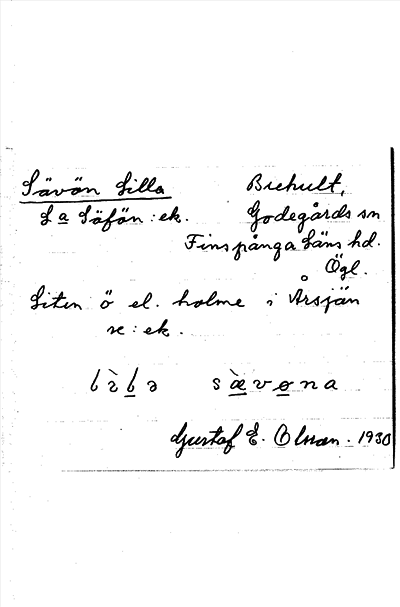 Sävön Lilla Brehult,
La Säfön : ek. Godegårds sn
Finspånga Läns hd.
Ögl.
Liten ö el. holme i Årsjän
se : ek.
sævøna
Gustaf E. Olsson. 1930